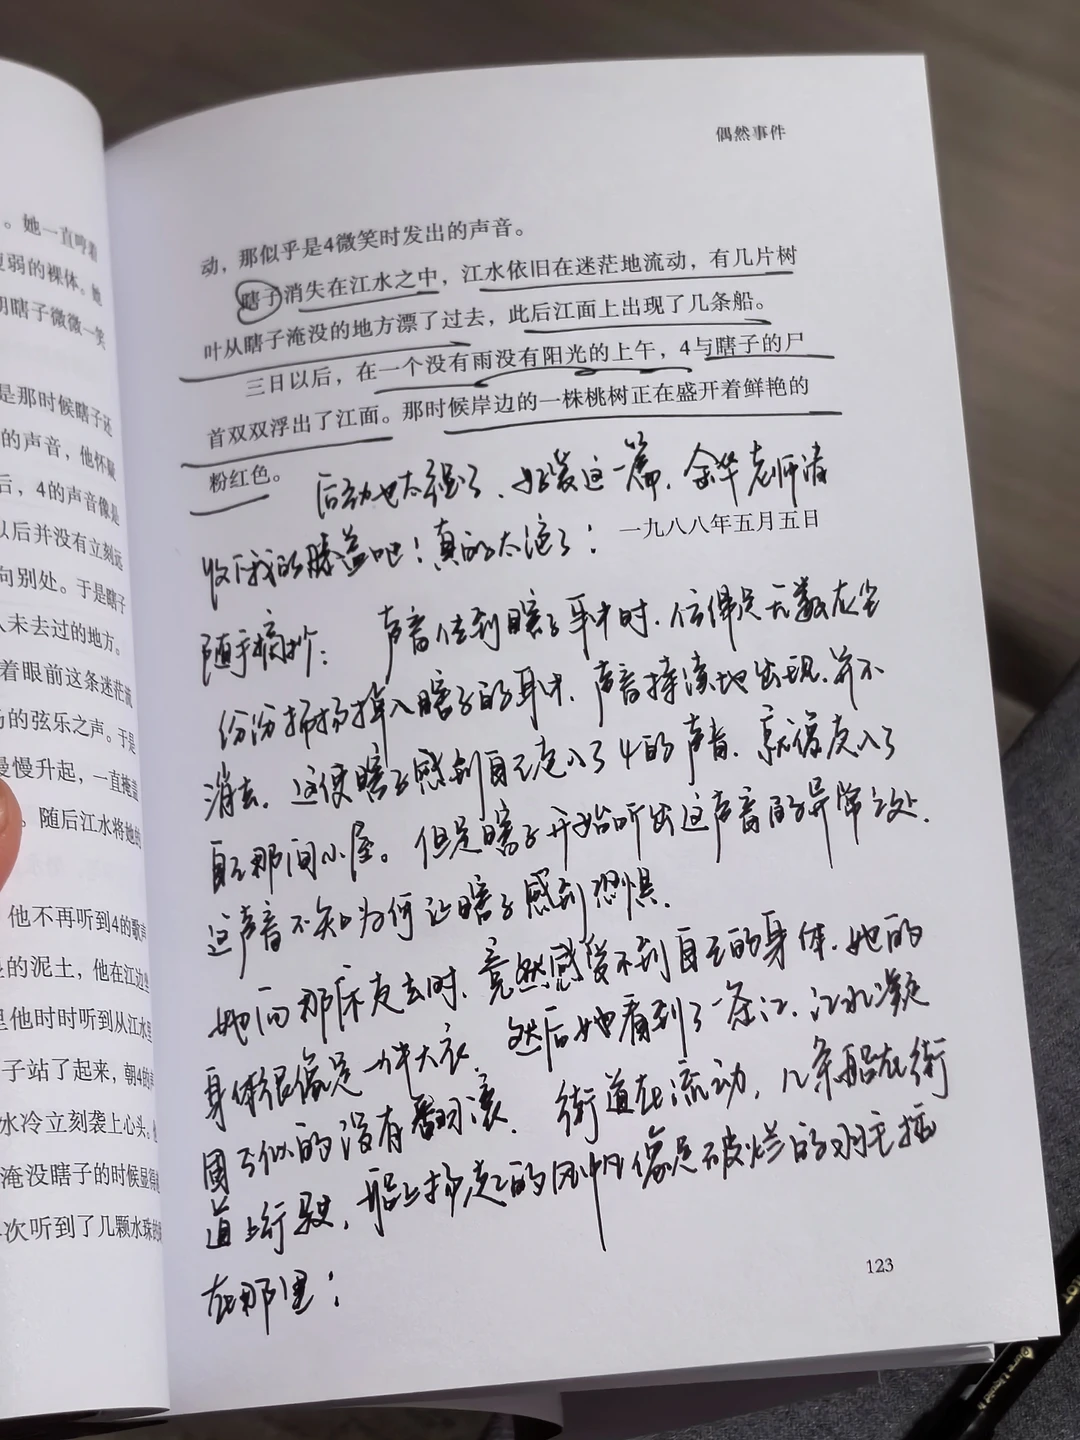 。她一直哼着
弱的裸体。她
朝瞎子微微一笑
是那时候瞎子还
的声音，他怀疑
后，4的声音像是
以后并没有立刻远
向别处。于是瞎子
人未去过的地方。
着眼前这条迷茫流
的弦乐之声。于是
慢慢升起，一直掩盖
。随后江水将她的
他不再听到4的歌声
的泥土，他在江边坐
里他时时听到从江水里
子站了起来，朝4的
水冷立刻袭上心头。
淹没瞎子的时候显得
次听到了几颗水珠
偶然事件
动，那似乎是4微笑时发出的声音。
瞎子消失在江水之中，江水依旧在迷茫地流动，有几片树
叶从瞎子淹没的地方漂了过去，此后江面上出现了几条船。
三日以后，在一个没有雨没有阳光的上午，4与瞎子的尸
首双双浮出了江面。那时候岸边的一株桃树正在盛开着鲜艳的
粉红色。
后劲也太强了，好爱这一篇，余华老师请
一九八八年五月五日
收下我的膝盖吧！真的太绝了！
随手摘抄：声音传到瞎子耳中时，仿佛是无数灰尘
纷纷扬扬掉入瞎子的耳中，声音持续地出现，并不
消去，这使瞎子感到自己走入了4的声音，就像走入了
自己那间小屋。但是瞎子开始听出这声音的异常之处，
这声音不知为何让瞎子感到恐惧。
她向那床走去时，竟然感受不到自己的身体，她的
身体很像是一件大衣，然后她看到了一条江，江水凝
固了似的没有翻滚，街道在流动，几条船在街
道上行驶，船上扬起的风帆像是破烂的羽毛插
在那里！
123